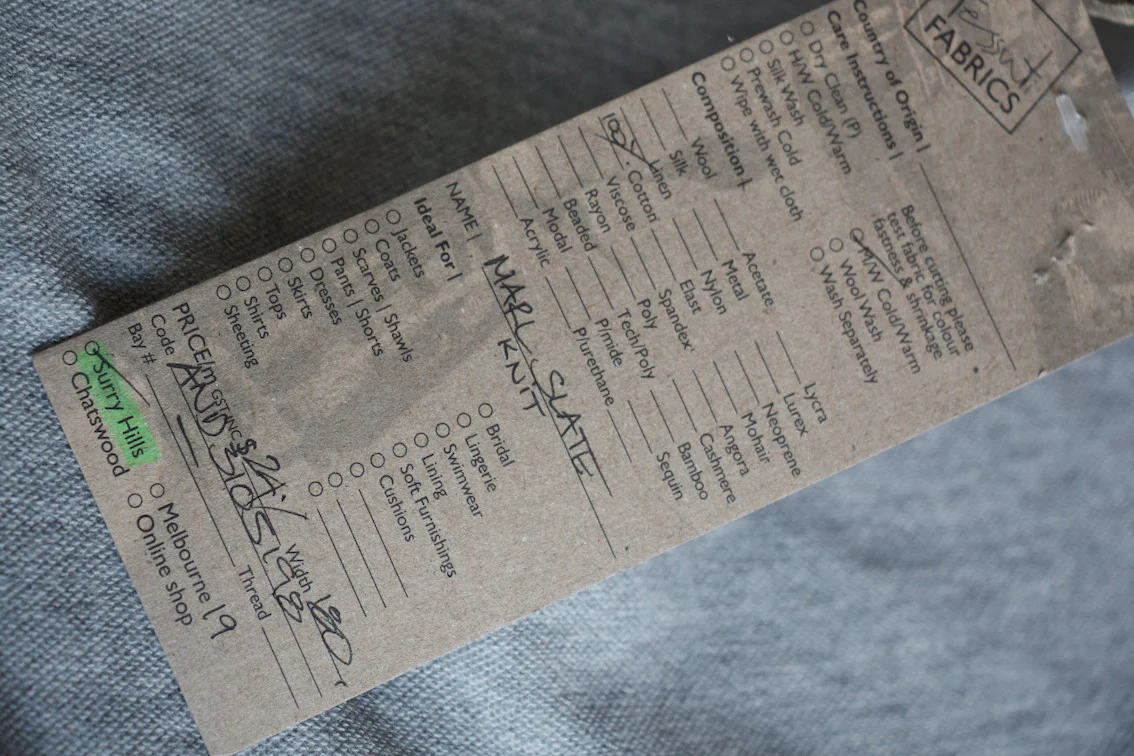 Tessuti
FABRICS
Country of Origin |
Care Instructions |
Dry Clean (P)
H/W Cold/Warm
Silk Wash
Prewash Cold
Wipe with wet cloth
Before cutting please
test fabric for colour
fastness & shrinkage
M/W Cold/Warm
Wool Wash
Wash Separately
Composition |
Wool
Silk
Linen
100% Cotton
Viscose
Rayon
Beaded
Modal
Acrylic
Acetate
Metal
Nylon
Elast
Spandex
Poly
Tech/Poly
P/mide
P/urethane
Lycra
Lurex
Neoprene
Mohair
Angora
Cashmere
Bamboo
Sequin
NAME | MARL SLATE
KNIT
Ideal For |
Jackets
Coats
Scarves | Shawls
Pants | Shorts
Dresses
Skirts
Tops
Shirts
Sheeting
Bridal
Lingerie
Swimwear
Lining
Soft Furnishings
Cushions
PRICE/m GST INC $24. Width 180
Code
Bay # Thread
Surry Hills
Chatswood
Melbourne 19
Online shop